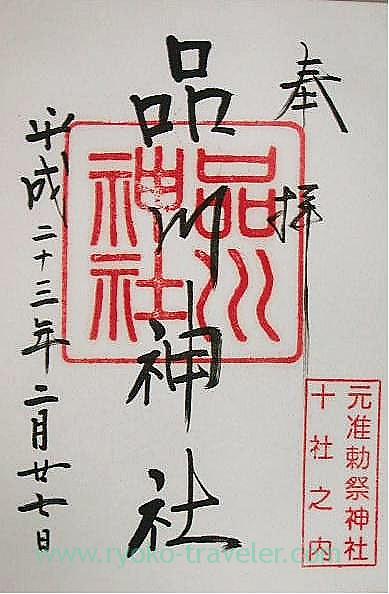 奉拝
品川神社
品川
神社
平成二十三年二月廿七日
元准勅祭神社
十社之内
www.ryoko-traveler.com